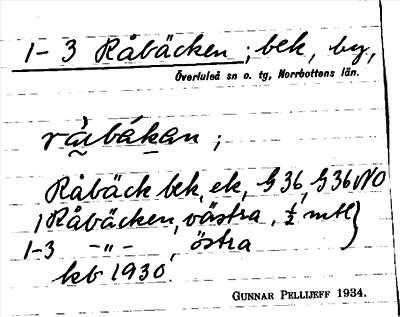 1-3 Råbäcken; bek, by,
Överluleå sn o. tg, Norrbottens län.
råbákan;
Råbäck bek, ek, G 36, G 36 NO
1 Råbäcken, västra, ½ mtl
1-3 -"- , östra
kb 1930.
GUNNAR PELLIJEFF 1934.